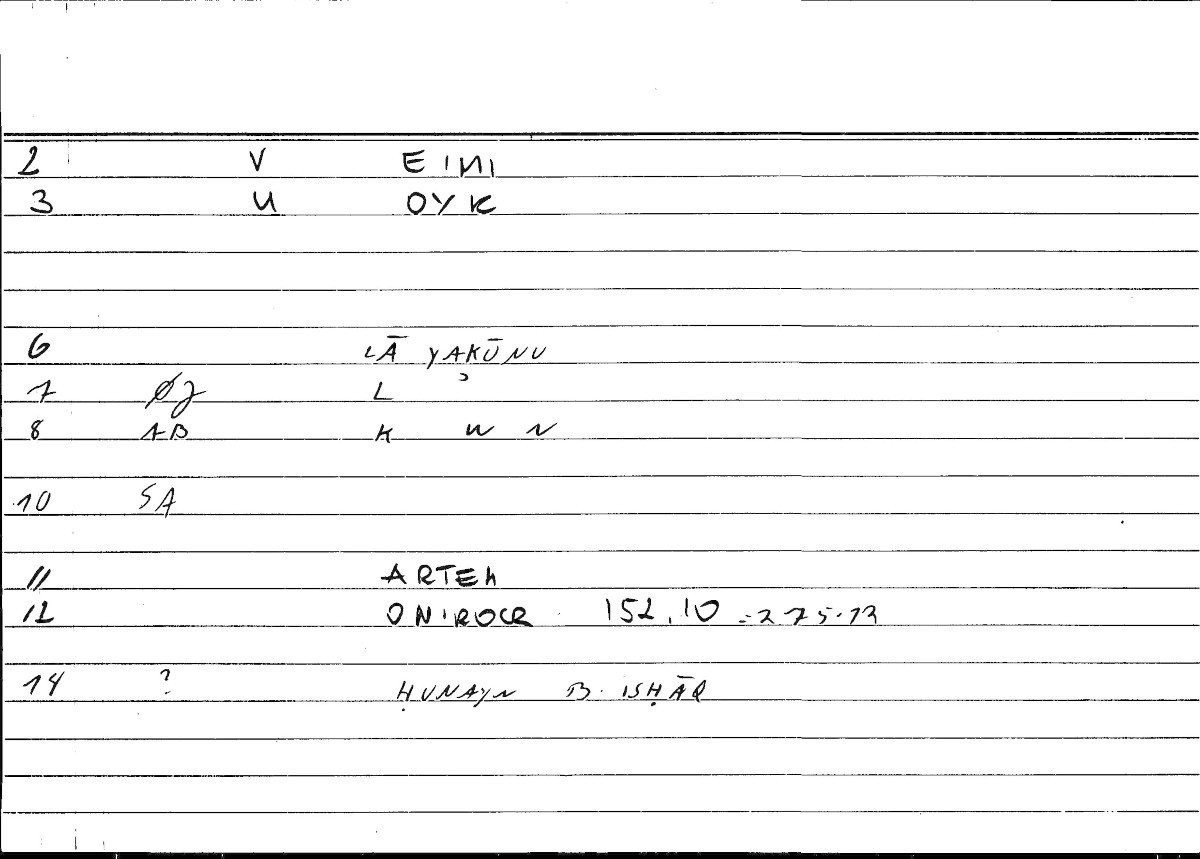 2 V EIMI
3 U OYK
6 LĀ YAKŪNU
7 ØJ L
8 AB K W N
10 SA
11 ARTEM
12 ONIROCR 152.10 = 275.13
14 ? ḤUNAYN B. ISḤĀQ